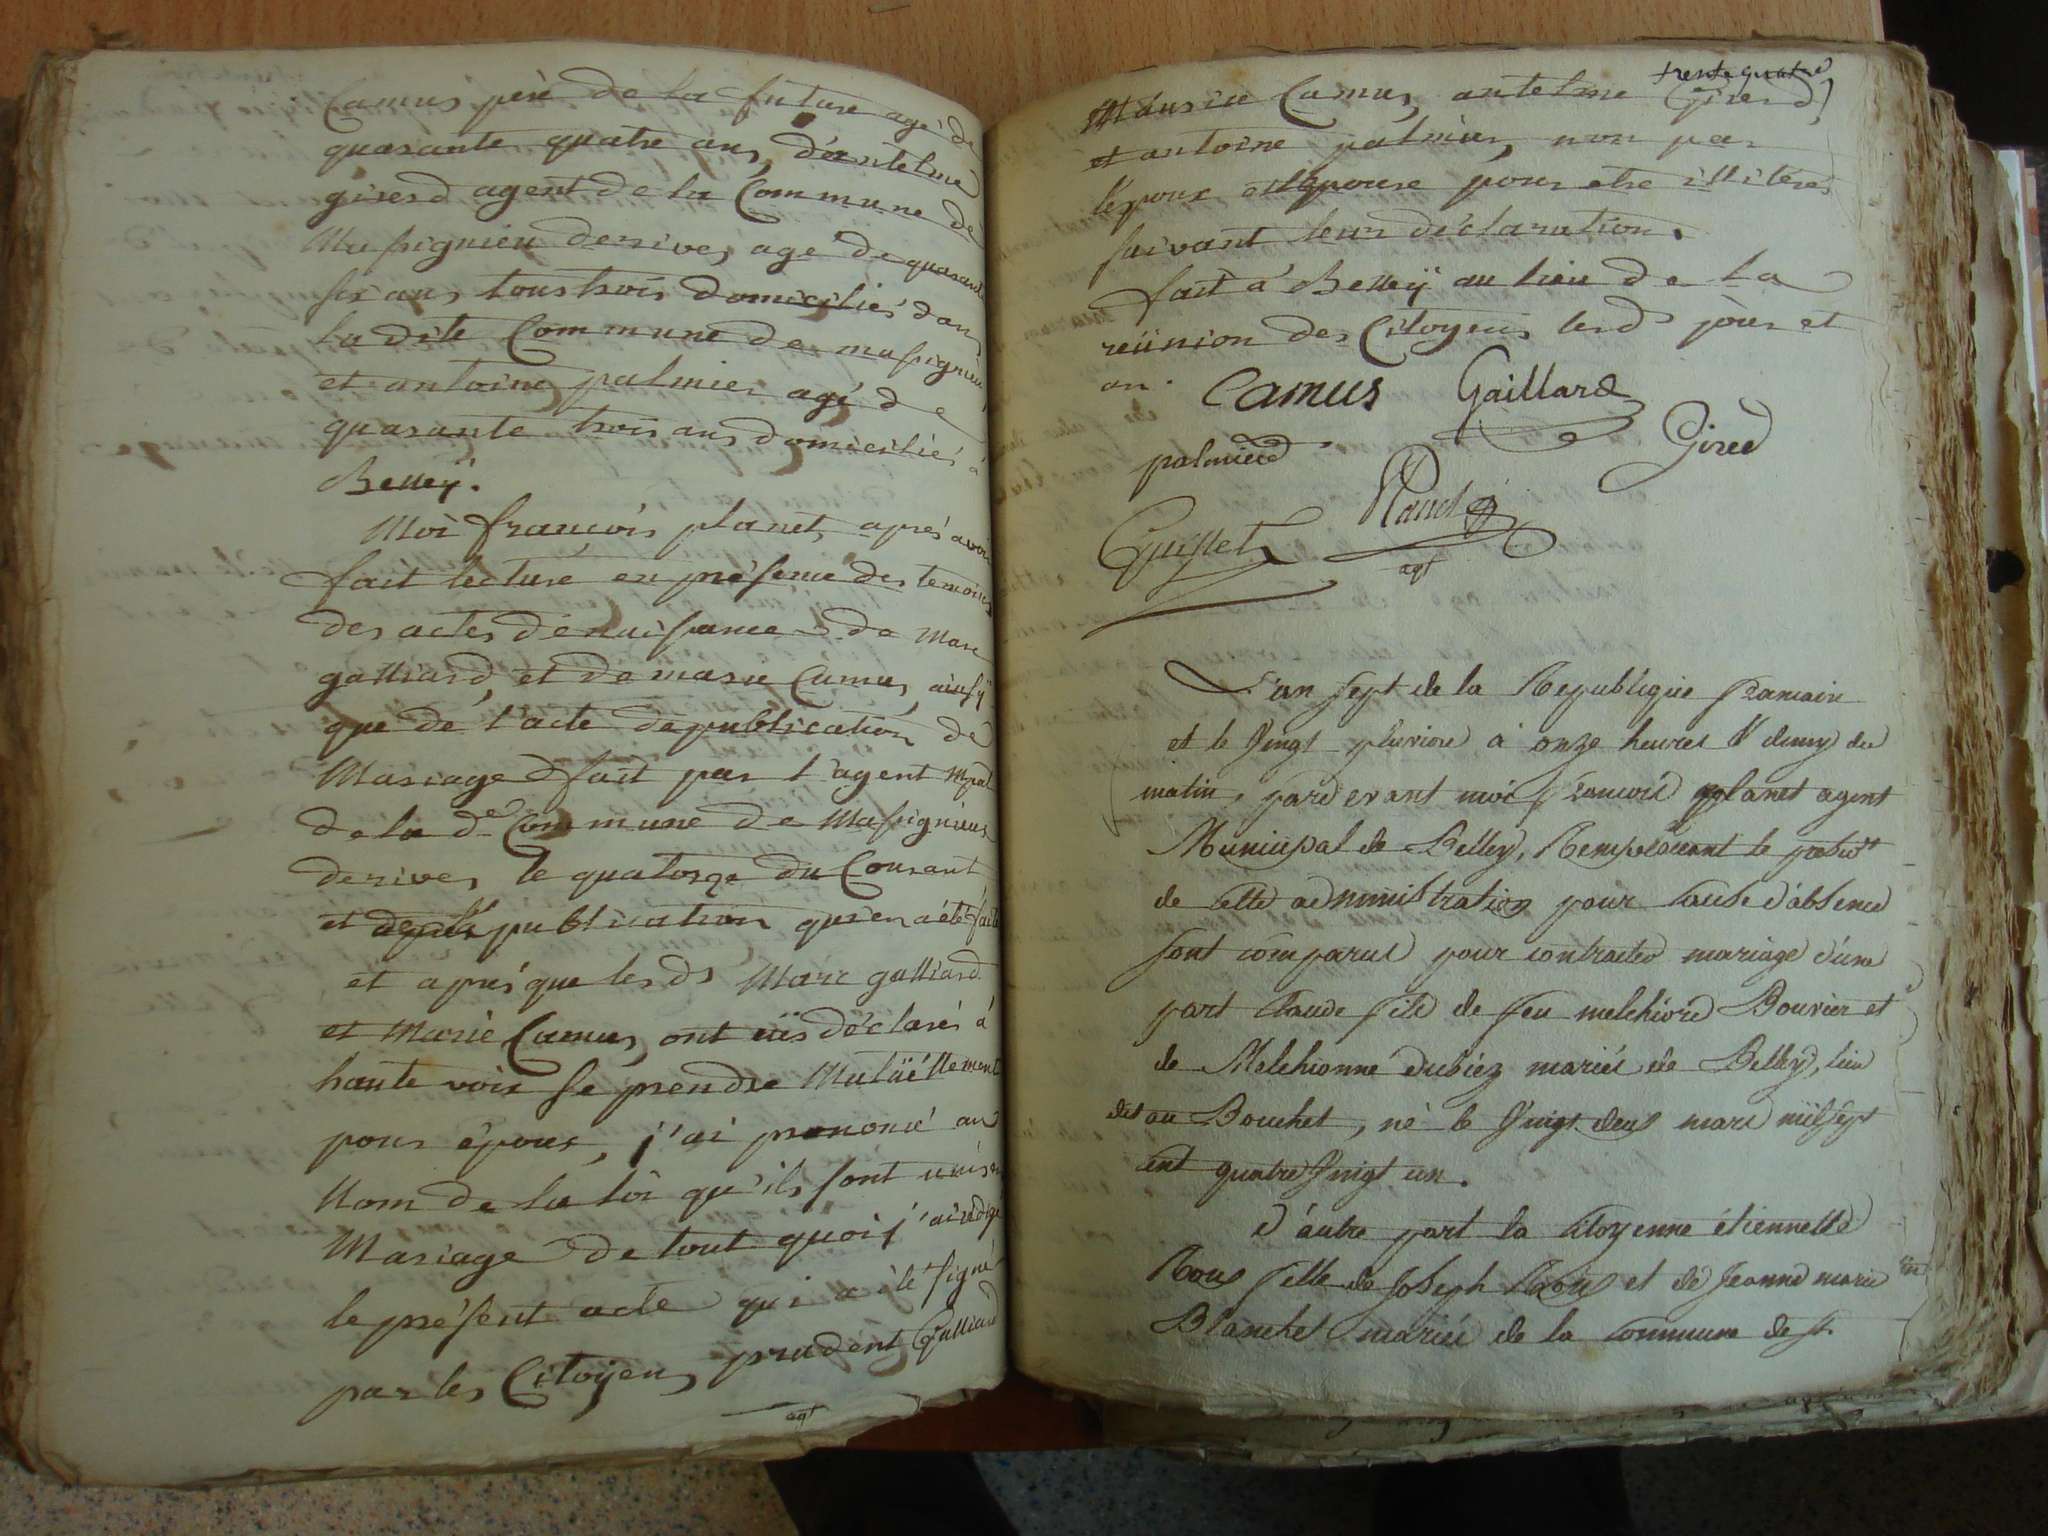 Camus père de la future agé de
quarante quatre ans, d'antelme
girerd agent de la Commune de
Massignieu derives, agé de quarante
six ans tous trois domiciliés dans
la dite Commune de massignieu,
et antoine palmier agé de
quarante trois ans domiciliés à
Belleÿ.
Moi françois planet, aprés avoir
fait lecture en présence des temoins
des actes de naissance de Marc
galliard, et de marie Camus, ainsÿ
que de l'acte de publication de
Mariage fait par l'agent Mpal
de la de Commune de Massignieux
derives, le quatorze du Courant
et publication qui en a été faite
et aprés que les ds Marc galliard
et Marie Camus, ont eüs déclarés à
haute voix se prendre Mutüellement
pour époux, j'ai prononcé au
Nom de la loi qu'ils sont unis en
Mariage de tout quoi j'ai rédigé
le présent acte qui a été signé
par les Citoÿens prudent Galliard
agt
trente quatre
Maurice Camus, antelme Girerd
et antoine palmier, non par
l'époux et l'épouse pour etre illiterés
suivant leur déclaration.
fait à Belleÿ au lieu de la
reünion des Citoyens lesds jour et
an.
Camus Gaillard
palmier Girerd
Planet
agt
L'an sept de la Republique francaise
et le vingt pluviose à onze heures & demy du
matin, pardevant moi françois planet agent
Municipal de Belley, Remplacant le presidt
de cette administration pour cause d'absence
sont comparus pour contracter mariage d'une
part Claude fils de feu melchiord Bouvier et
de Melchionne dubiez mariés de Belley, lieu
dit au Bouchet, né le vingt deux mars mil sept
cent quatre vingt un.
d'autre part la Citoyenne étiennette
Roux fille de Joseph Roux et de Jeanne marie
Blanchet mariés de la commune de st.